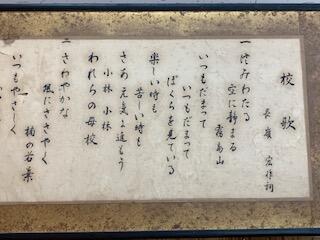 校歌
長廣 宏作詞
一 澄みわたる
空に静まる
霧島山
いつもだまって
いつもだまって
ぼくらを見ている
楽しい時も
苦しい時も
さあ 元気で進もう
小林 小林
われらの母校
二 さわやかな
風にささやく
楠の若葉
いつもやさしく